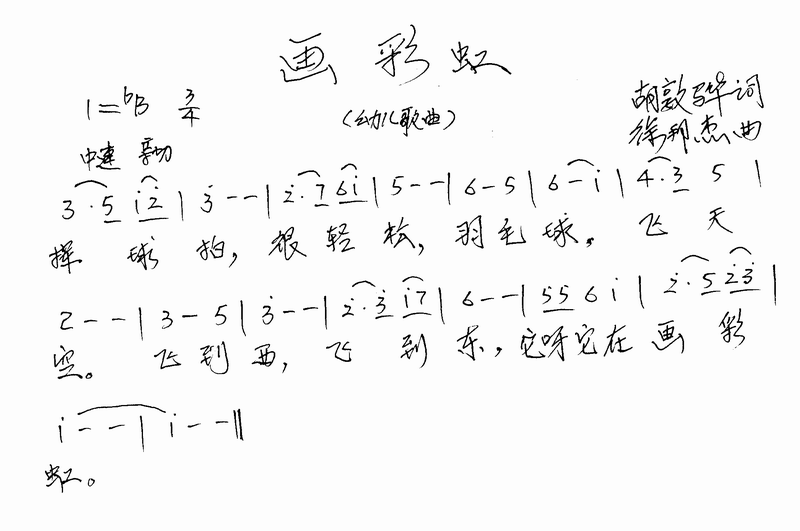 画彩虹
1=♭B 3/4
（幼儿歌曲）
胡敦骅词
中速 徐邦杰曲
3·5 i̇2̇ | 3̇ - - | 2̇·7 6i̇ | 5 - - | 6 - 5 | 6 - i̇ | 4·3 5 |
挥 球 拍，很 轻 松，羽毛 球，飞 天
2 - - | 3 - 5 | 3̇ - - | 2̇·3̇ i̇7 | 6 - - | 55 6 i̇ | 2̇·5 2̇3̇ |
空。 飞到 西，飞 到 东，它呀它在 画 彩
i̇ - - | i̇ - - ‖
虹。